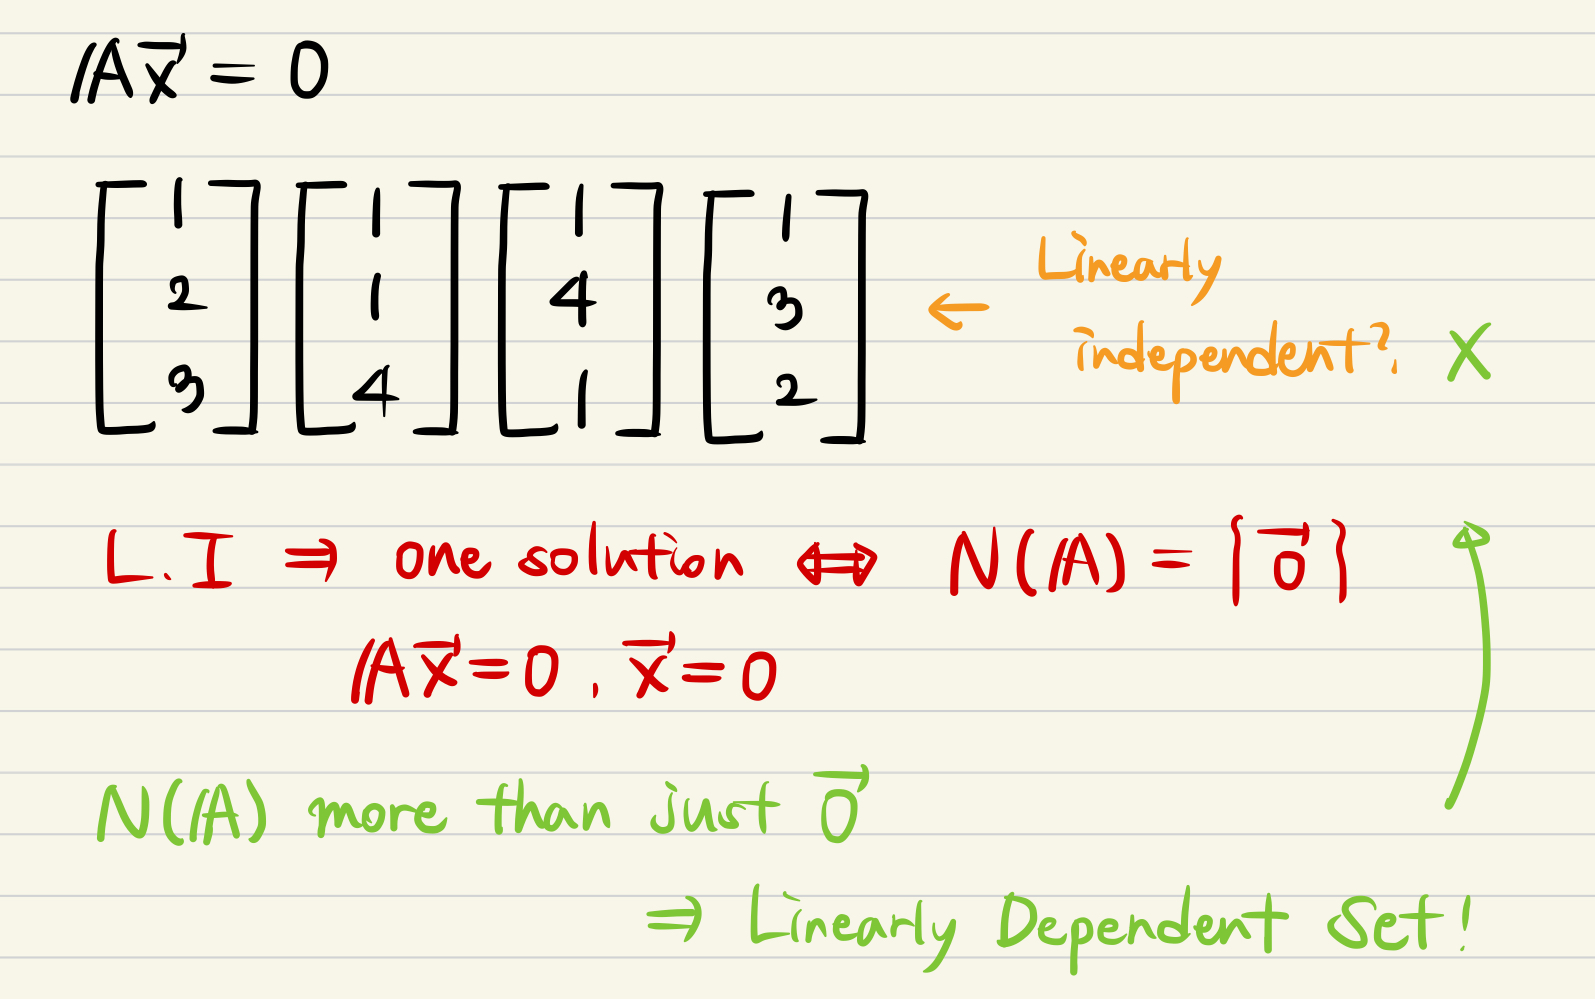 𝔸x⃗ = 0
[1 2 3] [1 1 4] [1 4 1] [1 3 2] ← Linearly independent? X
L.I ⇒ one solution ⇔ N(𝔸) = {0⃗}
𝔸x⃗ = 0 . x⃗ = 0
N(𝔸) more than just 0⃗
⇒ Linearly Dependent Set!